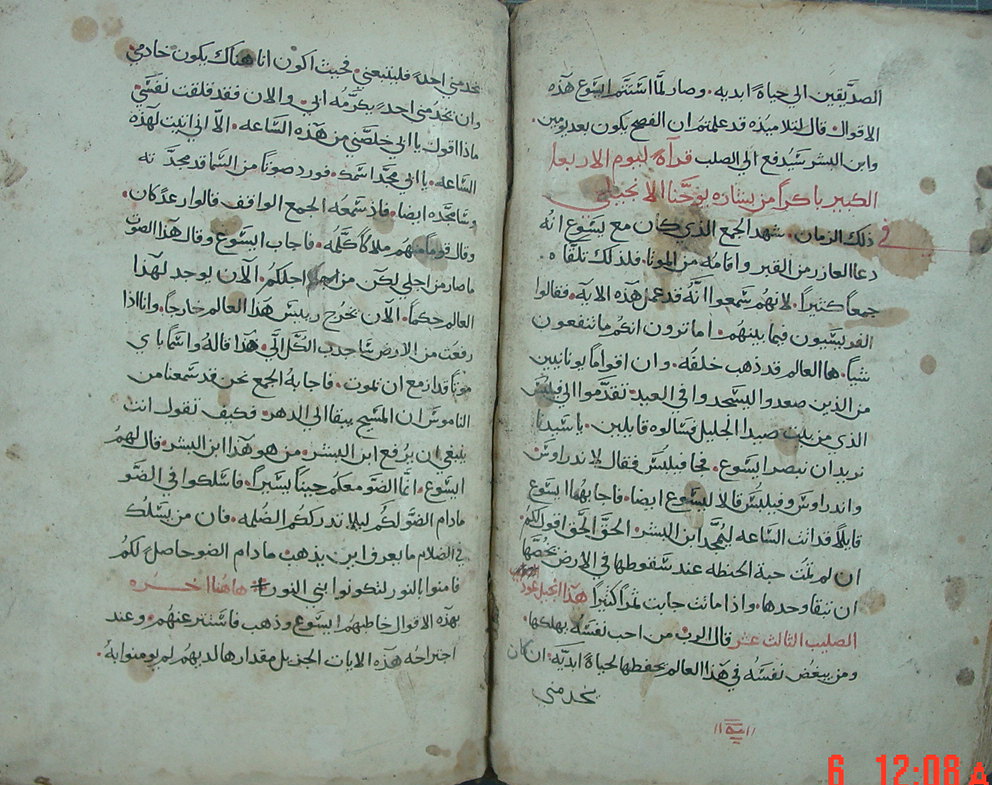 الصديقين الي حياة ابديه. وصار لما استتم ايسوع هذه
الاقوال. قال لتلاميذه قد علمتم ان الفصح يكون بعد يومين.
وابن البشر سيدفع الي الصلب قرآة ليوم الاربعا
الكبير باكرا من بشاره يوحنا الانجيلي
في ذلك الزمان. شهد الجمع الذي كان مع يسوع انه
دعا العازر من القبر واقامه من الموتا. فلذلك تلقاه
جمعا كثيرا. لانهم سمعوا انه قد عمل هذه الايه. فقالوا
الفريسيون فيما بينهم. اما ترون انكم ما تنفعون
شيا. ها العالم قد ذهب خلفه. وان اقواما يونانيين
من الذين صعدوا ليسجدوا في العيد. تقدموا الي فيلبس
الذي من بيت صيدا الجليل فسالوه قايلين. يا سيدنا
نريد ان نبصر ايسوع. فجا فيلبس فقال لاندراوس
واندراوس وفيلبس قالا ليسوع ايضا. فاجابهما ايسوع
قايلا قد اتت الساعه ليتمجد ابن البشر. الحق الحق اقول لكم.
ان لم تمت حبة الحنطه عند سقوطها في الارض يخصها
ان تبقا وحدها. واذا ماتت جابت ثمرا كثيرا هذا انجيل عود
الصليب الثالث عشر قال الرب من احب نفسه يهلكها.
ومن يبغض نفسه في هذا العالم يحفظها لحياة ابديه. ان كان
يخدمني
يخدمني احد فليتبعني. فحيث اكون انا هناك يكون خادمي
وان يخدمني احد يكرمه ابي. والان فقد قلقت نفسي
ماذا اقول يا ابي خلصني من هذه الساعه. الا اني اتيت لهذه
الساعه. يا ابي مجد اسمك. فورد صوتا من السما قد مجدته
وسامجده ايضا. فاذ سمعه الجمع الواقف قالوا رعد كان.
وقال قوما منهم ملاكا كلمه. فاجاب ايسوع وقال هذا الصوت
ما صار من اجلي لكن من اجلكم. الان يوجد لهذا
العالم حكما. الان يخرج رييس هذا العالم خارجا. وانا اذا
رفعت من الارض ساجدب الكل الي. هذا قاله واسما باي
موتا قد ازمع ان يموت. فاجابه الجمع نحن قد سمعنا من
الناموس ان المسيح يبقا الي الدهر. فكيف تقول انت
ينبغي ان يرفع ابن البشر. من هو هذا ابن البشر. قال لهم
ايسوع. انما الضو معكم حينا يسيرا. فاسلكوا في الضو
مادام الضو لكم ليلا تدرككم الضلمه. فان من يسلك
في الضلام ما يعرف اين يذهب. مادام الضو حاصل لكم
فامنوا بالنور لتكونوا بني النور هاهنا اخره
بهذه الاقوال خاطبهم ايسوع وذهب فاستتر عنهم. وعند
اجتراحه هذه الايات الجزيل مقدارها لديهم لم يومنوا به.
6 12:08